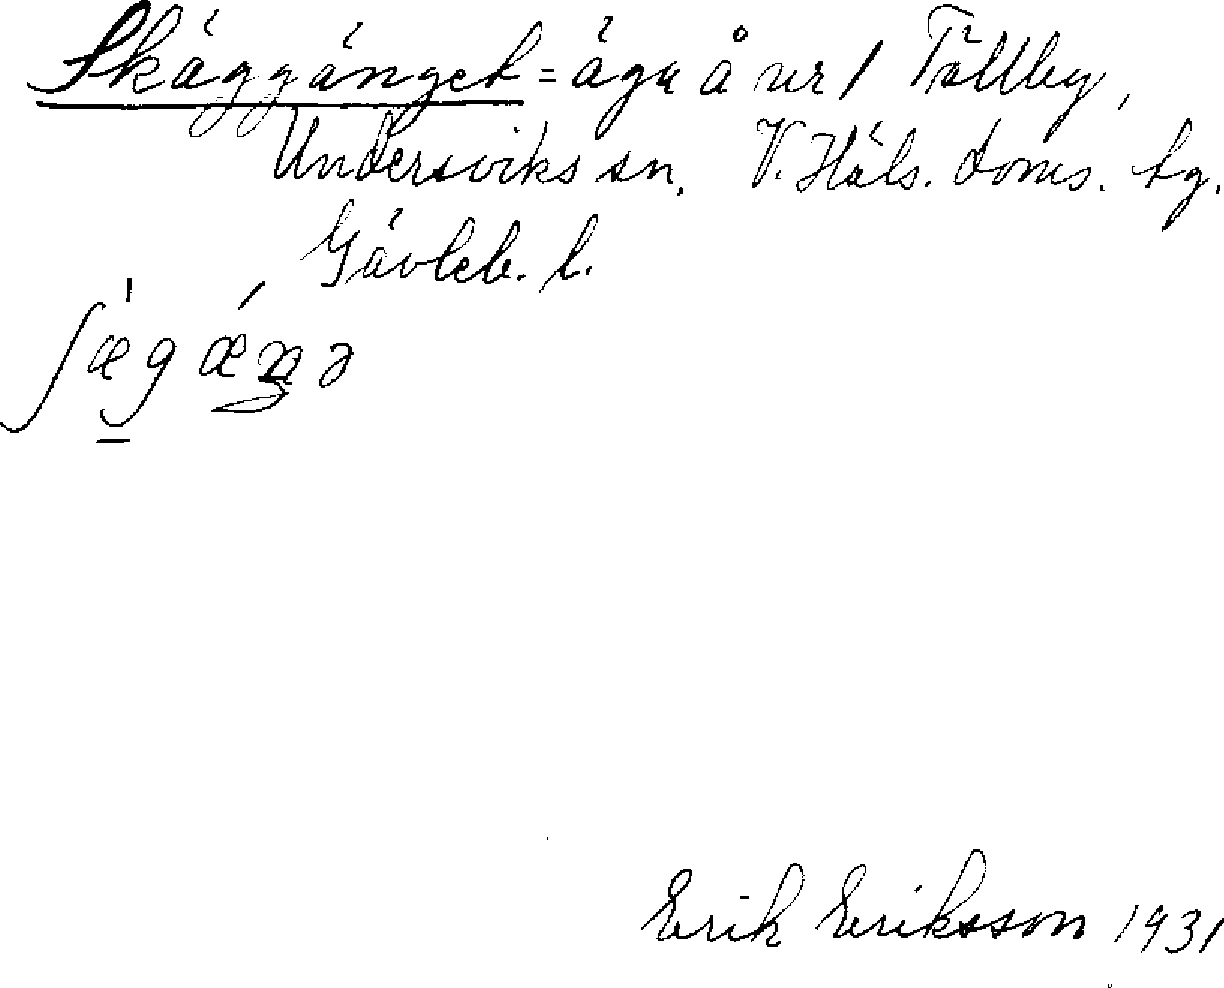 Skäggänget = äga å ur / Tällby,
Undersviks sn. V. Häls. doms. hg.
Gävleb. l.
Erik Eriksson 1931